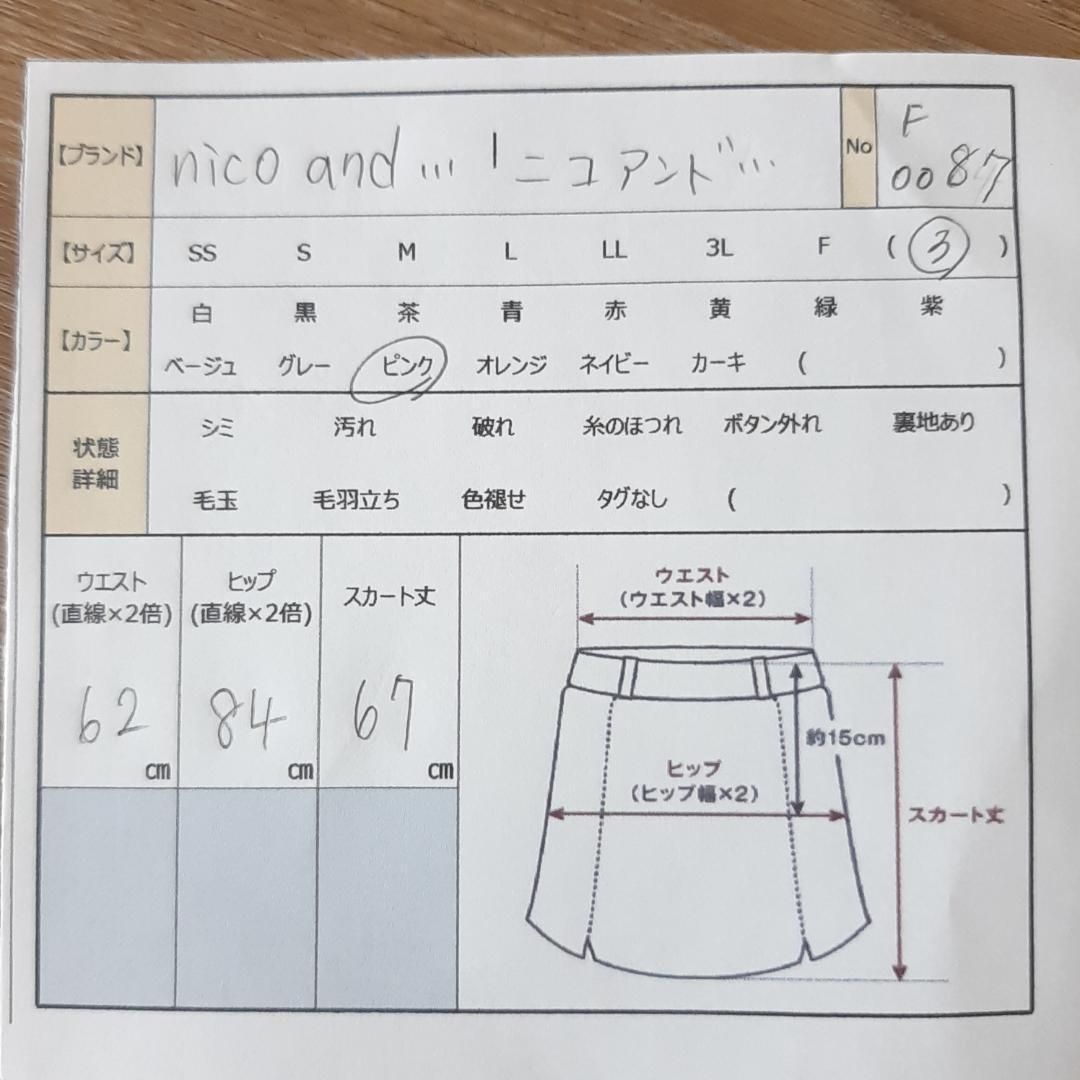 【ブランド】 nico and … | ニコアンド… No F
0087
【サイズ】 SS S M L LL 3L F ( 3 )
【カラー】 白 黒 茶 青 赤 黄 緑 紫
ベージュ グレー ピンク オレンジ ネイビー カーキ ( )
状態
詳細
シミ 汚れ 破れ 糸のほつれ ボタン外れ 裏地あり
毛玉 毛羽立ち 色褪せ タグなし ( )
ウエスト
(直線×2倍)
62
cm
ヒップ
(直線×2倍)
84
cm
スカート丈
67
cm
ウエスト
(ウエスト幅×2)
約15cm
ヒップ
(ヒップ幅×2)
スカート丈